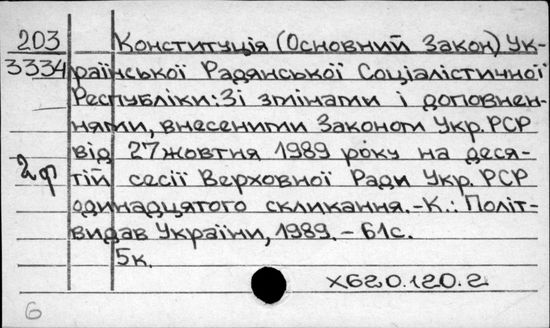 203 Конституція (Основний Закон) Ук-
3334 раїнської Радянської Соціалістичної
Республіки: Зі змінами і доповнен-
нями, внесеними Законом Укр. РСР
від 27 жовтня 1989 року на деся-
2ф тій сесії Верховної Ради Укр. РСР
одинадцятого скликання. - К.: Політ-
видав України, 1989. - 61с.
5к.
х620.120.2
6